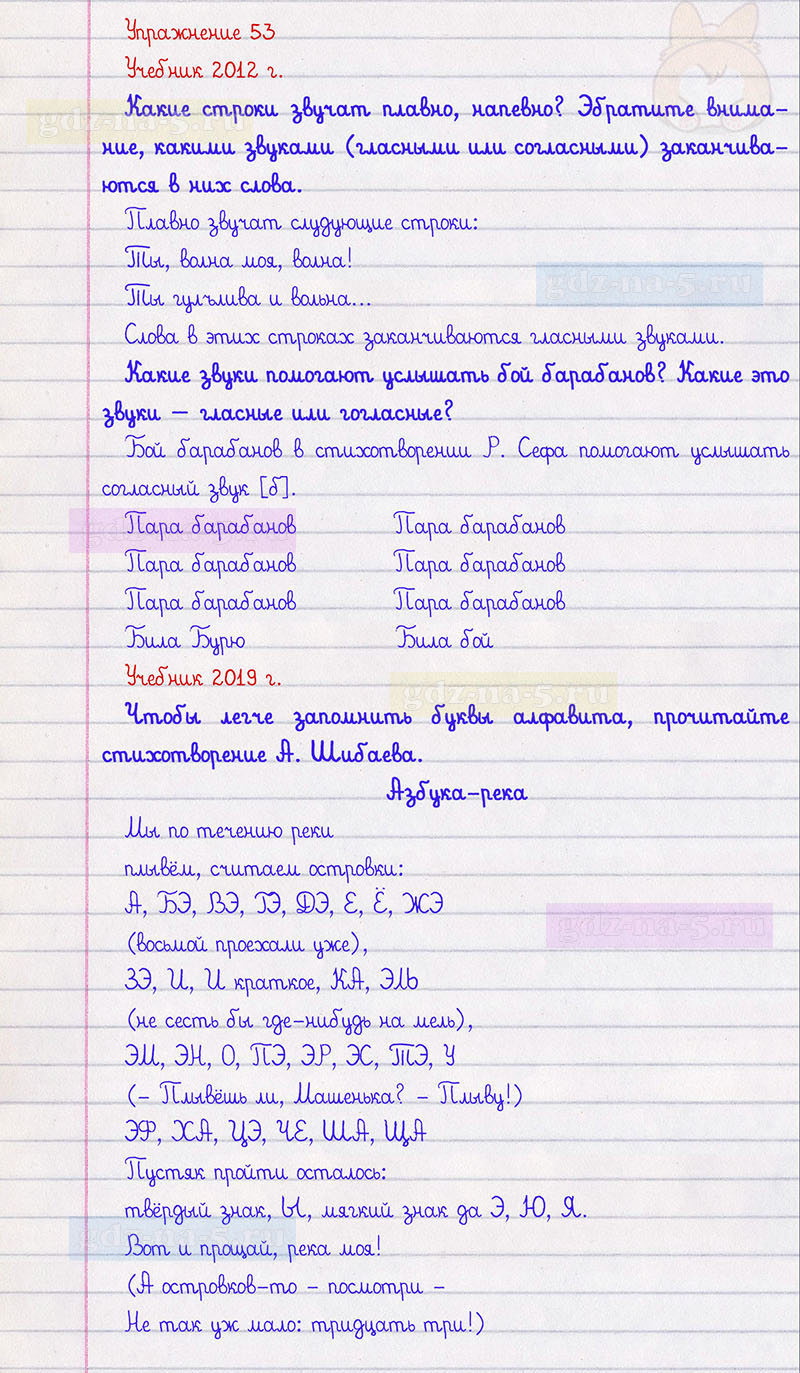 Упражнение 53
Учебник 2012 г.
Какие строки звучат плавно, напевно? Эбратите внима-
gdz-na-5.ru
ние, какими звуками (гласными или согласными) заканчива-
ются в них слова.
Плавно звучат слудующие строки:
Ты, волна моя, волна!
gdz-na-5.ru
Ты гулълива и вольна...
Слова в этих строках заканчиваются гласными звуками.
Какие звуки помогают услышать бой барабанов? Какие это
звуки – гласные или гогласные?
Бой барабанов в стихотворении Р. Сефа помогают услышать
согласный звук [б].
Пара барабанов Пара барабанов
gdz-na-5.ru
Пара барабанов Пара барабанов
Пара барабанов Пара барабанов
Била Бурю Била бой
Учебник 2019 г.
gdz-na-5.ru
Чтобы легче запомнить буквы алфавита, прочитайте
стихотворение А. Шибаева.
Азбука-река
Мы по течению реки
плывём, считаем островки:
А, БЭ, ВЭ, ГЭ, ДЭ, Е, Ё, ЖЭ
gdz-na-5.ru
(восьмой проехали уже),
ЗЭ, И, И краткое, КА, ЭЛЬ
(не сесть бы где-нибудь на мель),
ЭМ, ЭН, О, ПЭ, ЭР, ЭС, ТЭ, У
(– Плывёшь ли, Машенька? – Плыву!)
ЭФ, ХА, ЦЭ, ЧЕ, ША, ЩА
Пустяк пройти осталось:
твёрдый знак, Ы, мягкий знак да Э, Ю, Я.
gdz-na-5.ru
Вот и прощай, река моя!
(А островков-то – посмотри –
Не так уж мало: тридцать три!)